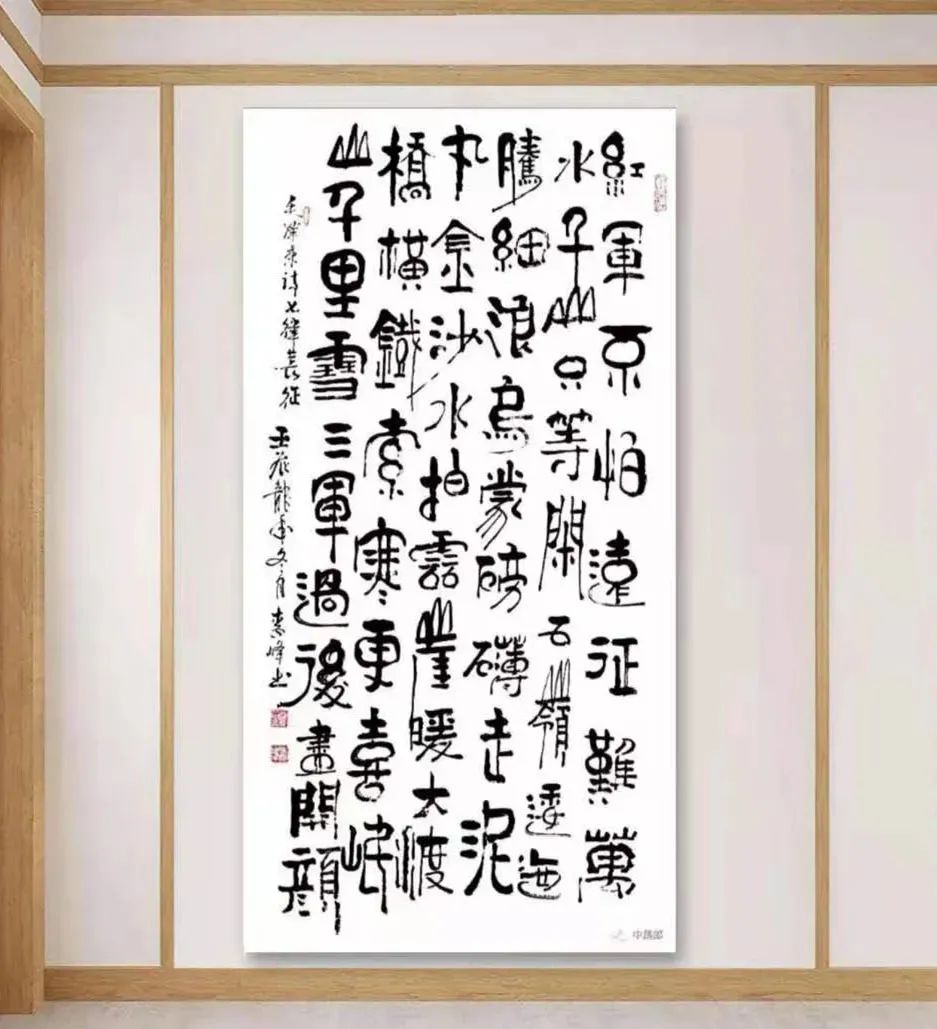 紅軍不怕遠征難萬
水千山只等閑石嶺逶迤
騰細浪烏蒙磅礴走泥
丸金沙水拍雲崖暖大渡
橋橫鐵索寒更喜岷
山千里雪三軍過後盡開顏
毛澤東詩七律長征 壬辰龍年冬月素峰書